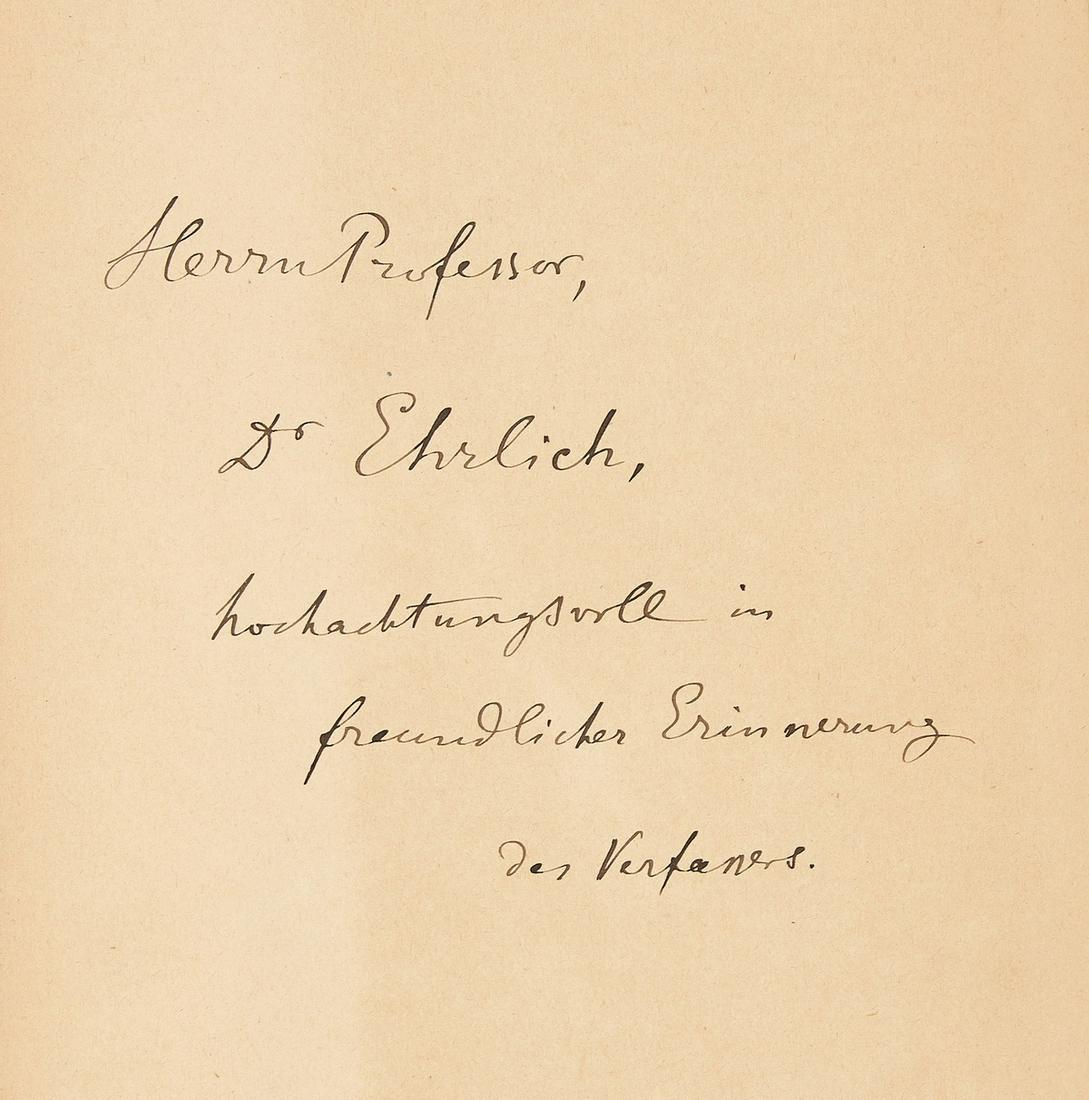 Herrn Professor,
Dr Ehrlich,
hochachtungsvoll in
freundlicher Erinnerung
des Verfassers.